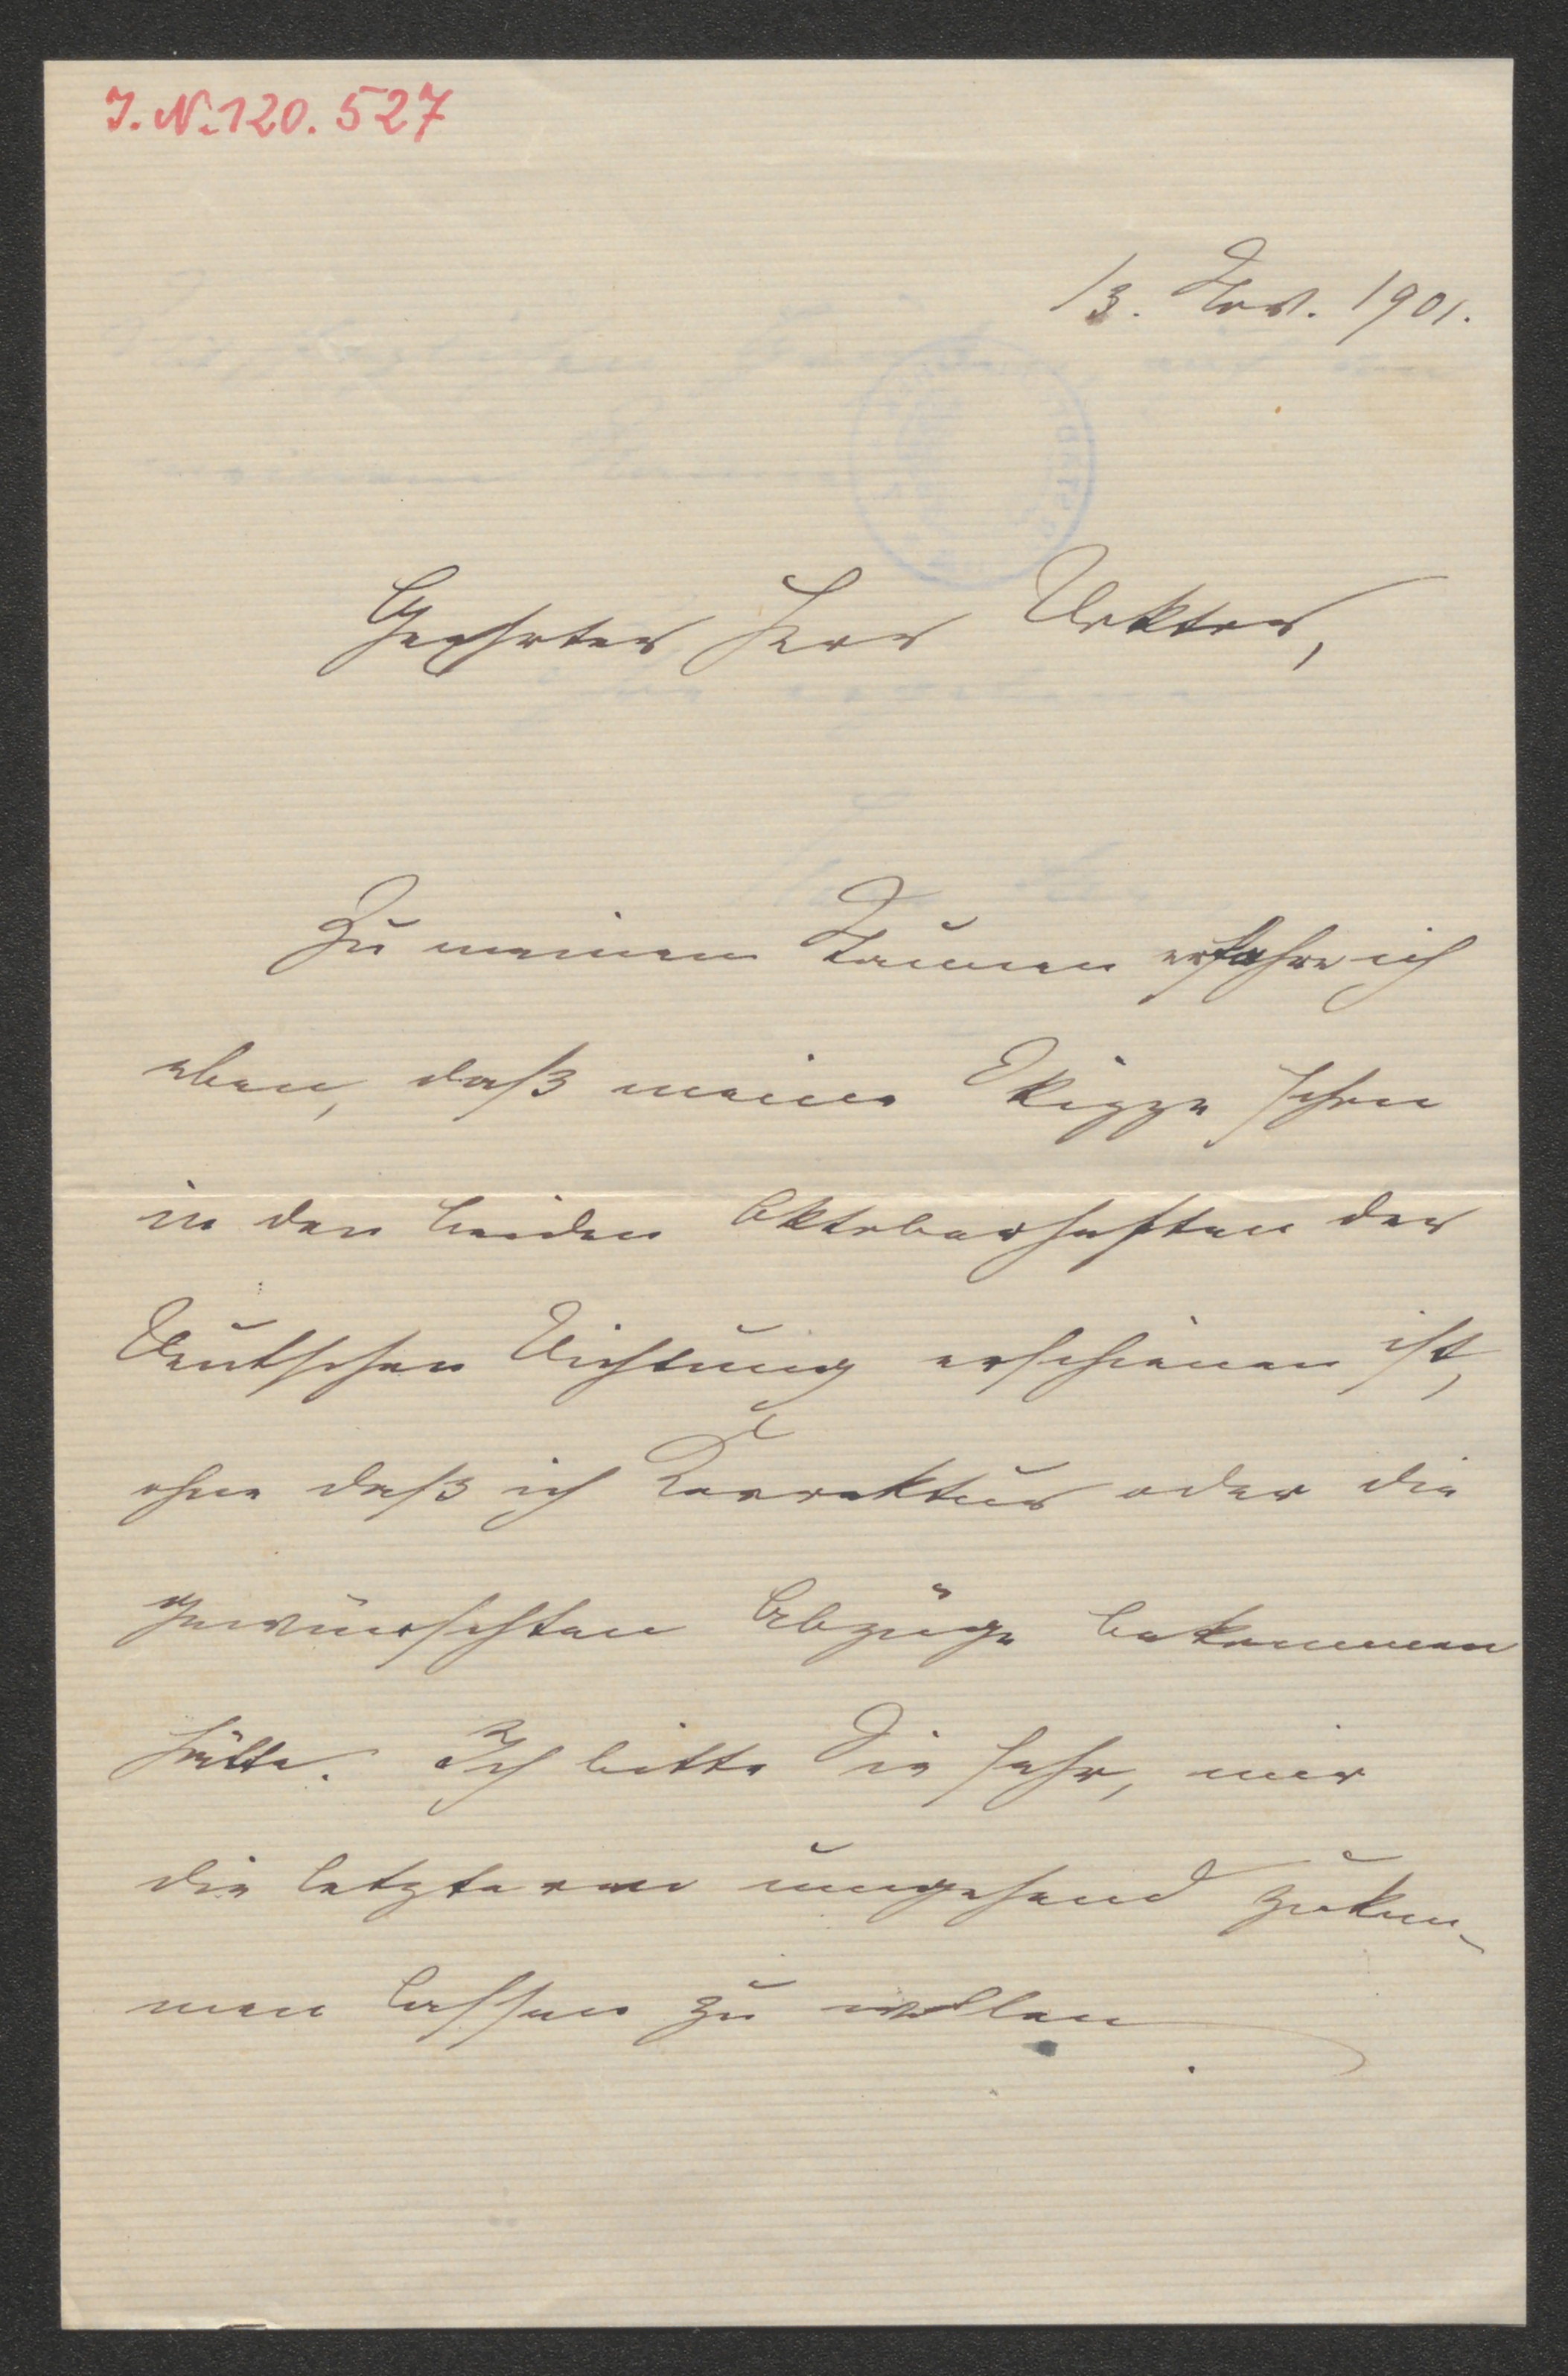 J. N. 120.527
13. Nov. 1901.
Geehrter Herr Doktor,
Zu meinem Staunen erfahre ich
eben, daß meine Skizze schon
in den beiden Oktoberheften der
Deutschen Dichtung erschienen ist,
ohne daß ich Korrektur oder die
gewünschten Abzüge bekommen
hätte. Ich bitte Sie sehr, mir
die letzteren umgehend zukom-
men lassen zu wollen.